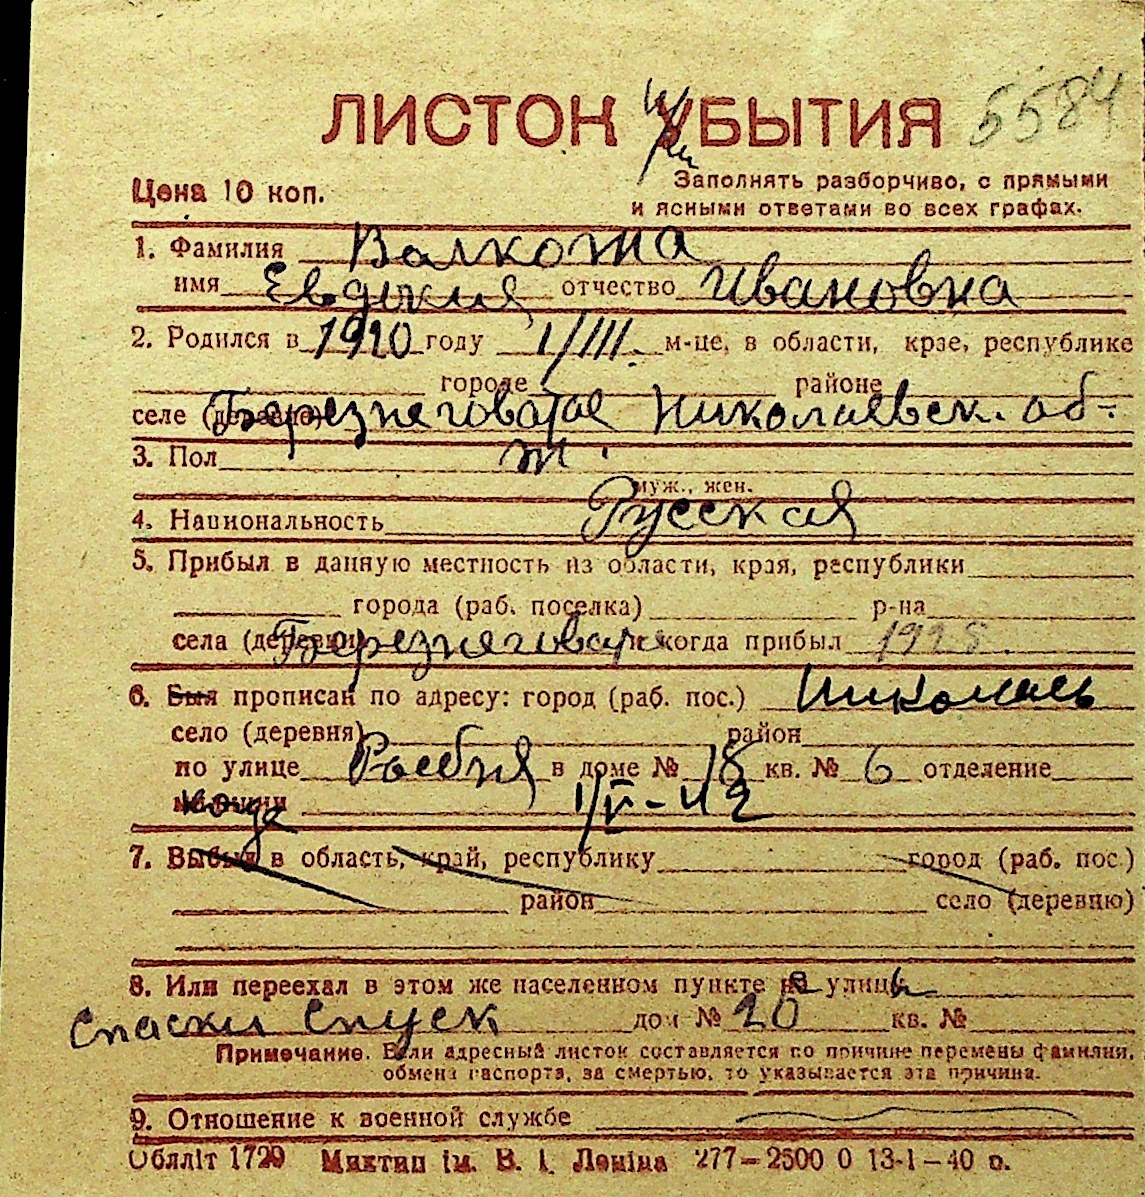 ЛИСТОК УБЫТИЯ 5584
Цена 10 коп.
Заполнять разборчиво, с прямыми
и ясными ответами во всех графах.
1. Фамилия Валкожа
имя Евдокия отчество Ивановна
2. Родился в 1920 году 1/III. м-це, в области, крае, республике
городе районе
селе (деревне) Березнеговатое Николаевск. об-
3. Пол ж.
муж., жен.
4. Национальность Русская
5. Прибыл в данную местность из области, края, республики
города (раб. поселка) р-на
села (деревни) и когда прибыл 1928.
6. Был прописан по адресу: город (раб. пос.) Николаев
село (деревня) район
по улице в доме № 18 кв. № 6 отделение
милиции когда 1/IV-42
7. Выбыл в область, край, республику город (раб. пос.)
район село (деревню)
8. Или переехал в этом же населенном пункте на улицу
Спаски Спуск дом № 20 кв. №
Примечание. Если адресный листок составляется по причине перемены фамилии,
обмена паспорта, за смертью, то указывается эта причина.
9. Отношение к военной службе
Обллiт 1729 Миктип iм. В. I. Ленiна 277—2500 0 13-1—40 р.